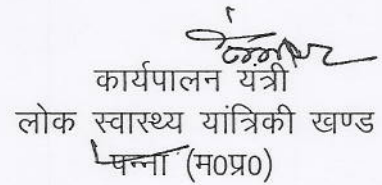 कार्यपालन यंत्री
लोक स्वास्थ्य यांत्रिकी खण्ड
पन्ना (म0प्र0)